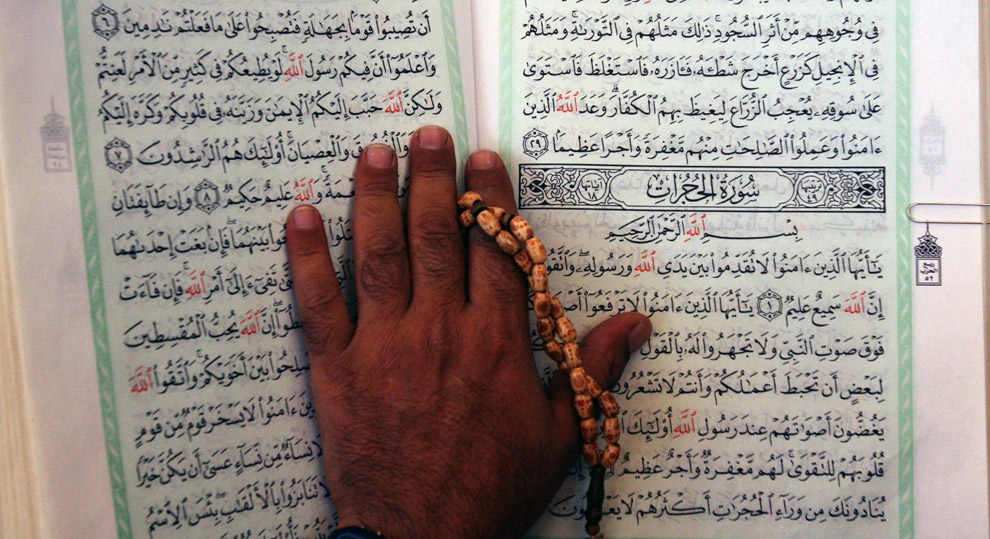 فِى وُجُوهِهِم مِّنْ أَثَرِ ٱلسُّجُودِ ۚ ذَٰلِكَ مَثَلُهُمْ فِى ٱلتَّوْرَىٰةِ ۚ وَمَثَلُهُمْ
فِى ٱلْإِنجِيلِ كَزَرْعٍ أَخْرَجَ شَطْـَٔهُۥ فَـَٔازَرَهُۥ فَٱسْتَغْلَظَ فَٱسْتَوَىٰ
عَلَىٰ سُوقِهِۦ يُعْجِبُ ٱلزُّرَّاعَ لِيَغِيظَ بِهِمُ ٱلْكُفَّارَ ۗ وَعَدَ ٱللَّهُ ٱلَّذِينَ
ءَامَنُوا۟ وَعَمِلُوا۟ ٱلصَّـٰلِحَـٰتِ مِنْهُم مَّغْفِرَةً وَأَجْرًا عَظِيمًۢا ٢٩
ترتيبها ٤٩ سُورَةُ الحُجُرَاتِ آياتها ١٨
بِسْمِ ٱللَّهِ ٱلرَّحْمَـٰنِ ٱلرَّحِيمِ
يَـٰٓأَيُّهَا ٱلَّذِينَ ءَامَنُوا۟ لَا تُقَدِّمُوا۟ بَيْنَ يَدَىِ ٱللَّهِ وَرَسُولِهِۦ ۖ
إِنَّ ٱللَّهَ سَمِيعٌ عَلِيمٌ ١ يَـٰٓأَيُّهَا ٱلَّذِينَ ءَامَنُوا۟ لَا تَرْفَعُوٓا۟
فَوْقَ صَوْتِ ٱلنَّبِىِّ وَلَا تَجْهَرُوا۟ لَهُۥ بِٱلْقَوْلِ
لِبَعْضٍ أَن تَحْبَطَ أَعْمَـٰلُكُمْ وَأَنتُمْ لَا تَشْعُرُونَ
يَغُضُّونَ أَصْوَٰتَهُمْ عِندَ رَسُولِ ٱللَّهِ أُو۟لَـٰٓئِكَ
قُلُوبَهُمْ لِلتَّقْوَىٰ ۚ لَهُم مَّغْفِرَةٌ وَأَجْرٌ عَظِيمٌ
يُنَادُونَكَ مِن وَرَآءِ ٱلْحُجُرَٰتِ أَكْثَرُهُمْ لَا
أَن تُصِيبُوا۟ قَوْمًۢا بِجَهَـٰلَةٍ فَتُصْبِحُوا۟ عَلَىٰ مَا فَعَلْتُمْ نَـٰدِمِينَ ٦
وَٱعْلَمُوٓا۟ أَنَّ فِيكُمْ رَسُولَ ٱللَّهِ ۚ لَوْ يُطِيعُكُمْ فِى كَثِيرٍ مِّنَ ٱلْأَمْرِ لَعَنِتُّمْ
وَلَـٰكِنَّ ٱللَّهَ حَبَّبَ إِلَيْكُمُ ٱلْإِيمَـٰنَ وَزَيَّنَهُۥ فِى قُلُوبِكُمْ وَكَرَّهَ إِلَيْكُمُ
وَٱلْعِصْيَانَ ۚ أُو۟لَـٰٓئِكَ هُمُ ٱلرَّٰشِدُونَ ٧
وَٱللَّهُ عَلِيمٌ حَكِيمٌ ٨ وَإِن طَآئِفَتَانِ
بَيْنَهُمَا ۖ فَإِنۢ بَغَتْ إِحْدَىٰهُمَا
تَفِىٓءَ إِلَىٰٓ أَمْرِ ٱللَّهِ ۚ فَإِن فَآءَتْ
إِنَّ ٱللَّهَ يُحِبُّ ٱلْمُقْسِطِينَ
بَيْنَ أَخَوَيْكُمْ ۚ وَٱتَّقُوا۟ ٱللَّهَ
ءَامَنُوا۟ لَا يَسْخَرْ قَوْمٌ مِّن قَوْمٍ
نِسَآءٌ مِّن نِّسَآءٍ عَسَىٰٓ أَن يَكُنَّ خَيْرًا
تَنَابَزُوا۟ بِٱلْأَلْقَـٰبِ ۖ بِئْسَ ٱلِٱسْمُ